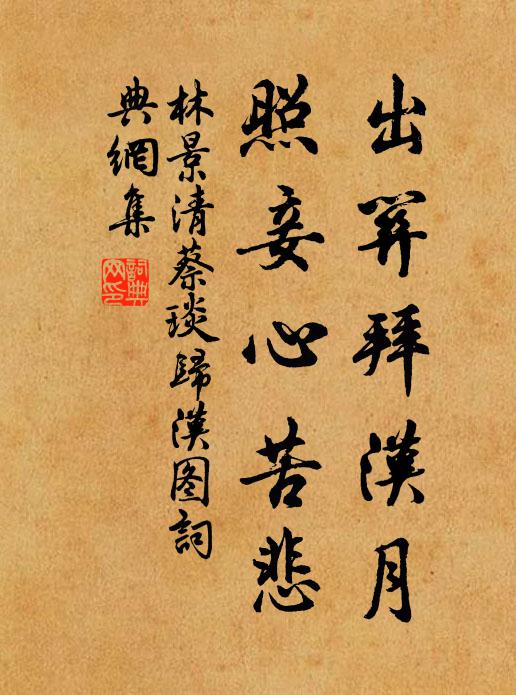 出關拜漢月
照妾心苦悲
林景清蔡琰歸漢图詞
典網集
詞典
网印